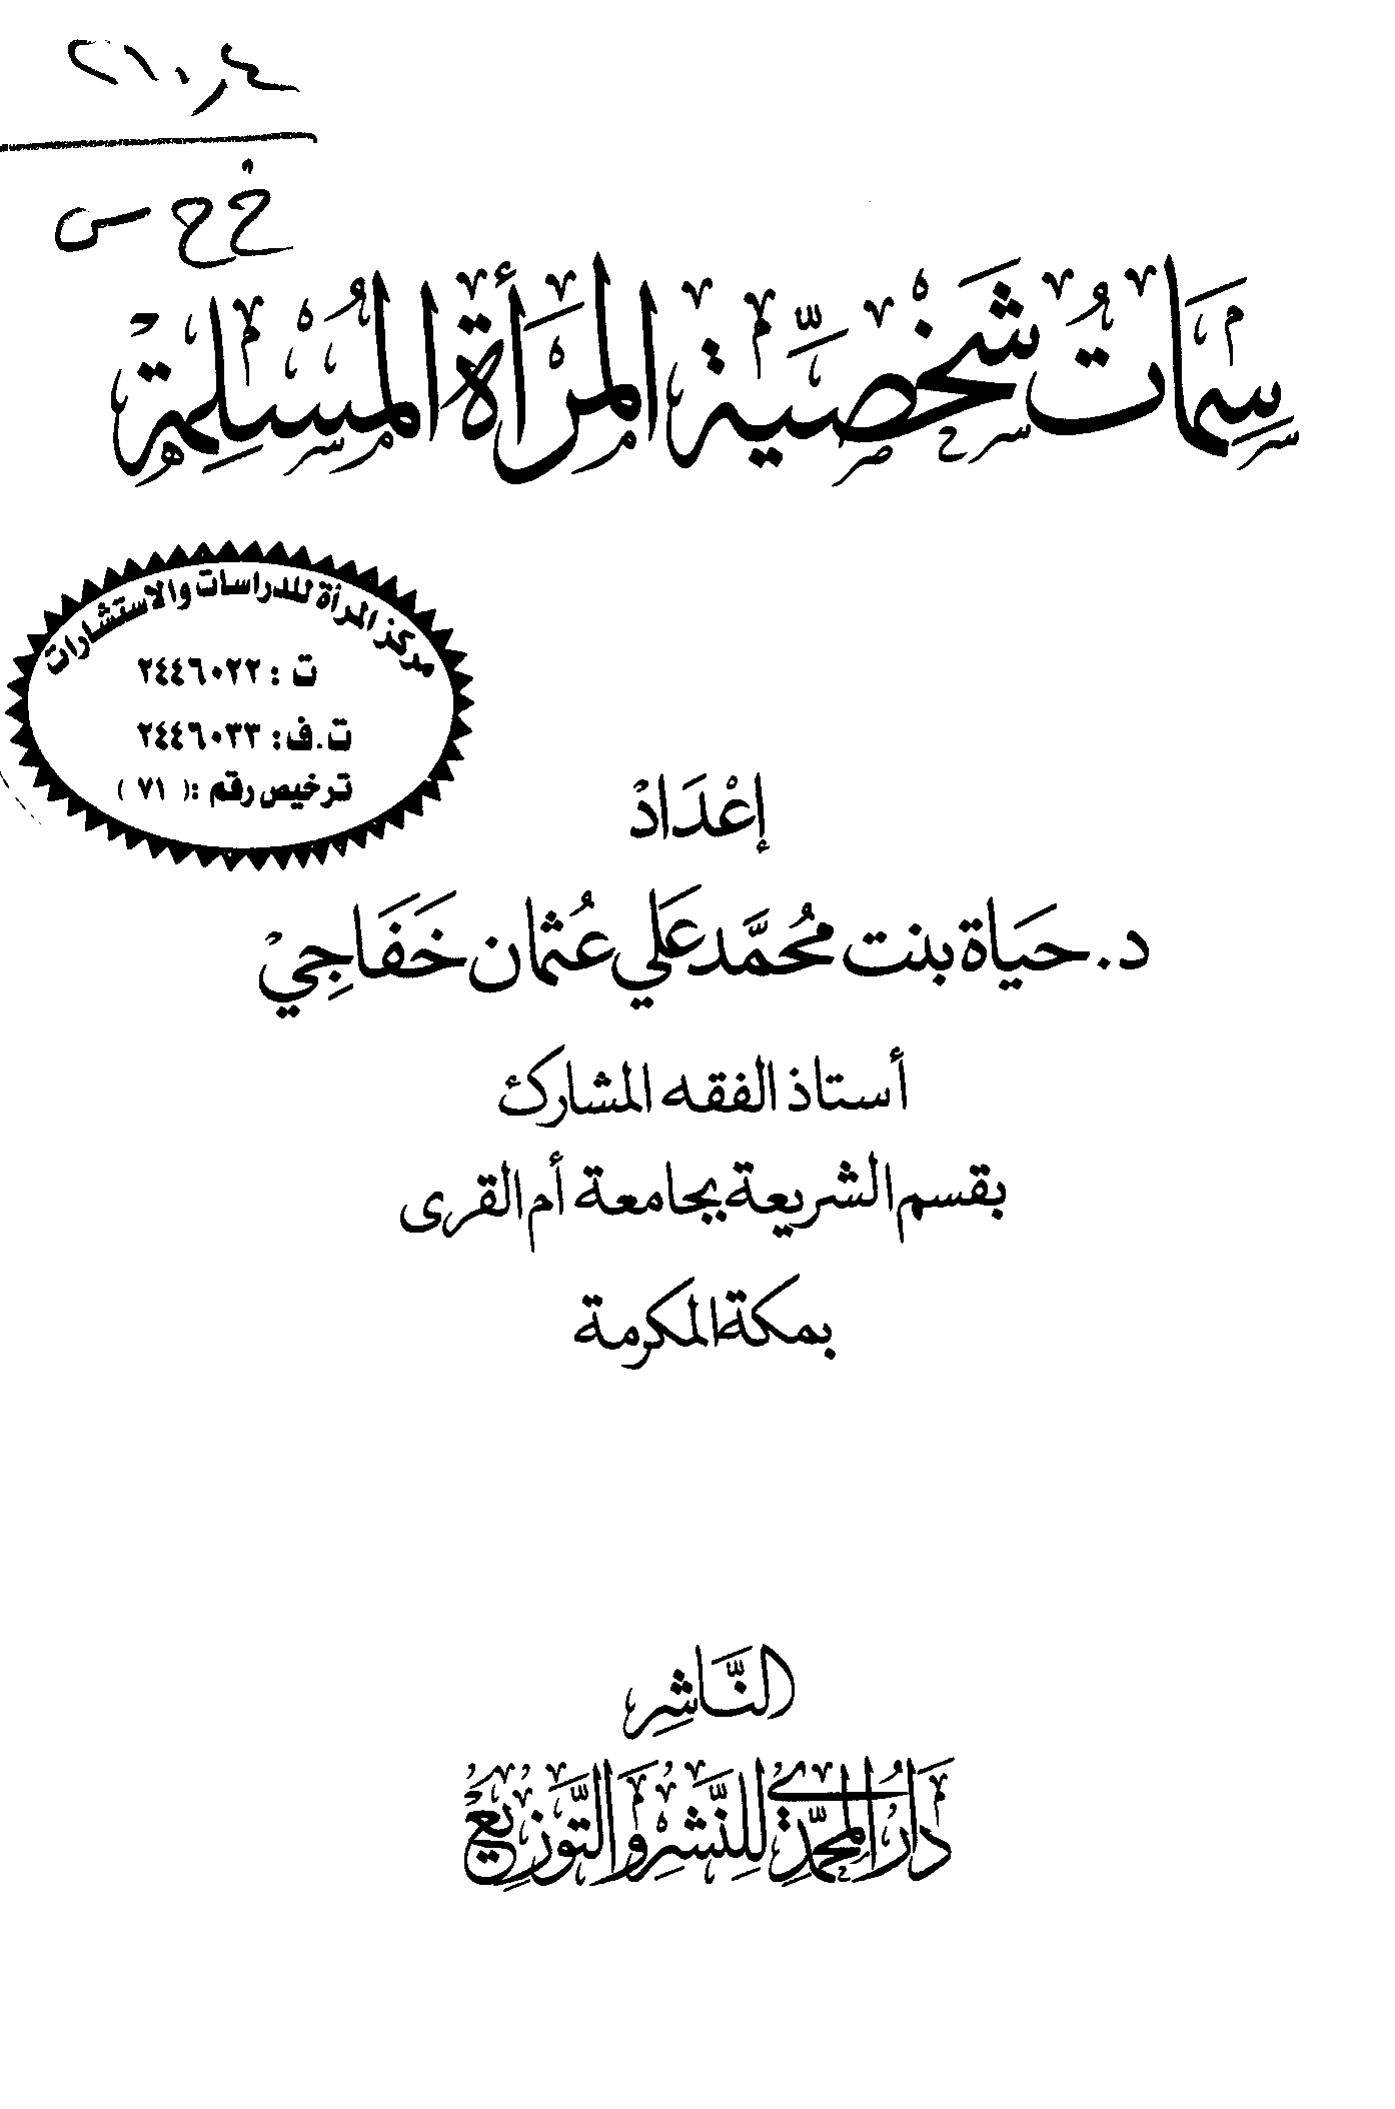 ٢١٠٫٤
خ ح س
سِمَاتُ شَخْصِيَّةِ المَرْأَةِ المُسْلِمَةِ
مركز المرأة للدراسات والاستشارات
ت : ٢٤٤٦٠٢٢
ت.ف: ٢٤٤٦٠٣٣
ترخيص رقم :( ٧١ )
إعْدَادْ
د. حيَاة بنت محُمَّد عَلي عُثمان خَفَاجِيْ
أستاذ الفقه المشارك
بقسم الشريعة بجامعة أم القرى
بمكة المكرمة
النَّاشِر
دَارُ المحمَّدِي لِلنَّشرِ وَالتَّوَزيعْ